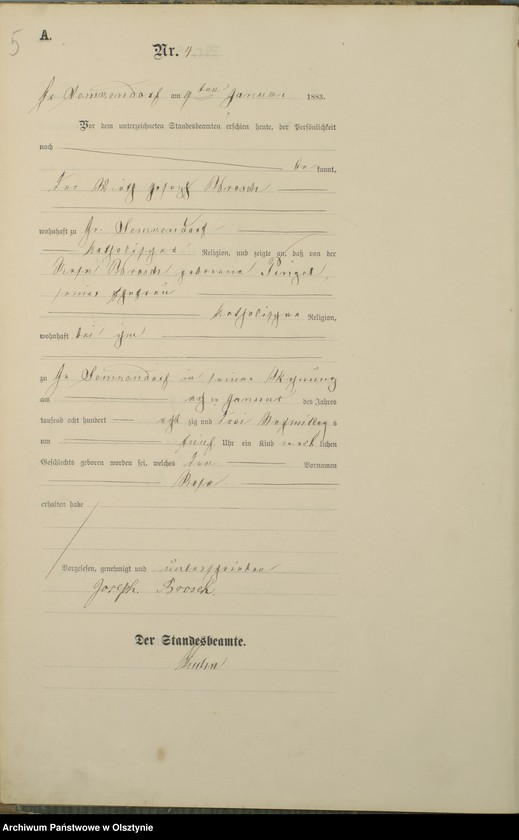 5
A.
Nr. 4
Gr. Lemkendorf am 9ten Januar 1883.
Vor dem unterzeichneten Standesbeamten erschien heute, der Persönlichkeit
nach be kannt,
der Wirth Joseph Brosch
wohnhaft zu Gr. Lemkendorf
katholischer Religion, und zeigte an, daß von der
Rosa Brosch geborene
seiner Ehefrau
katholischer Religion,
wohnhaft bei ihm
zu Gr. Lemkendorf in seiner Wohnung
am Januar des Jahres
tausend acht hundert acht zig und drei Nachmittags
um fünf Uhr ein Kind weib lichen
Geschlechts geboren worden sei, welches den Vornamen
Rosa
erhalten habe
Vorgelesen, genehmigt und unterschrieben
Joseph Brosch.
Der Standesbeamte.
Archiwum Państwowe w Olsztynie